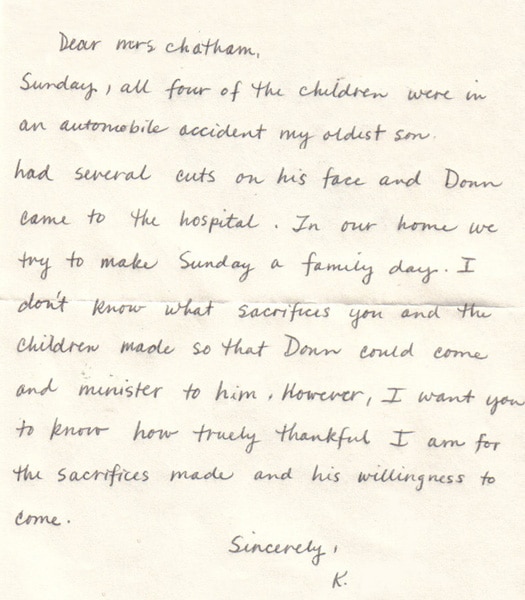 Dear mrs chatham,
Sunday, all four of the children were in
an automobile accident my oldest son.
had several cuts on his face and Donn
came to the hospital. In our home we
try to make Sunday a family day. I
don't know what sacrifices you and the
children made so that Donn could come
and minister to him. However, I want you
to know how truely thankful I am for
the sacrifices made and his willingness to
come.
Sincerely,
K.